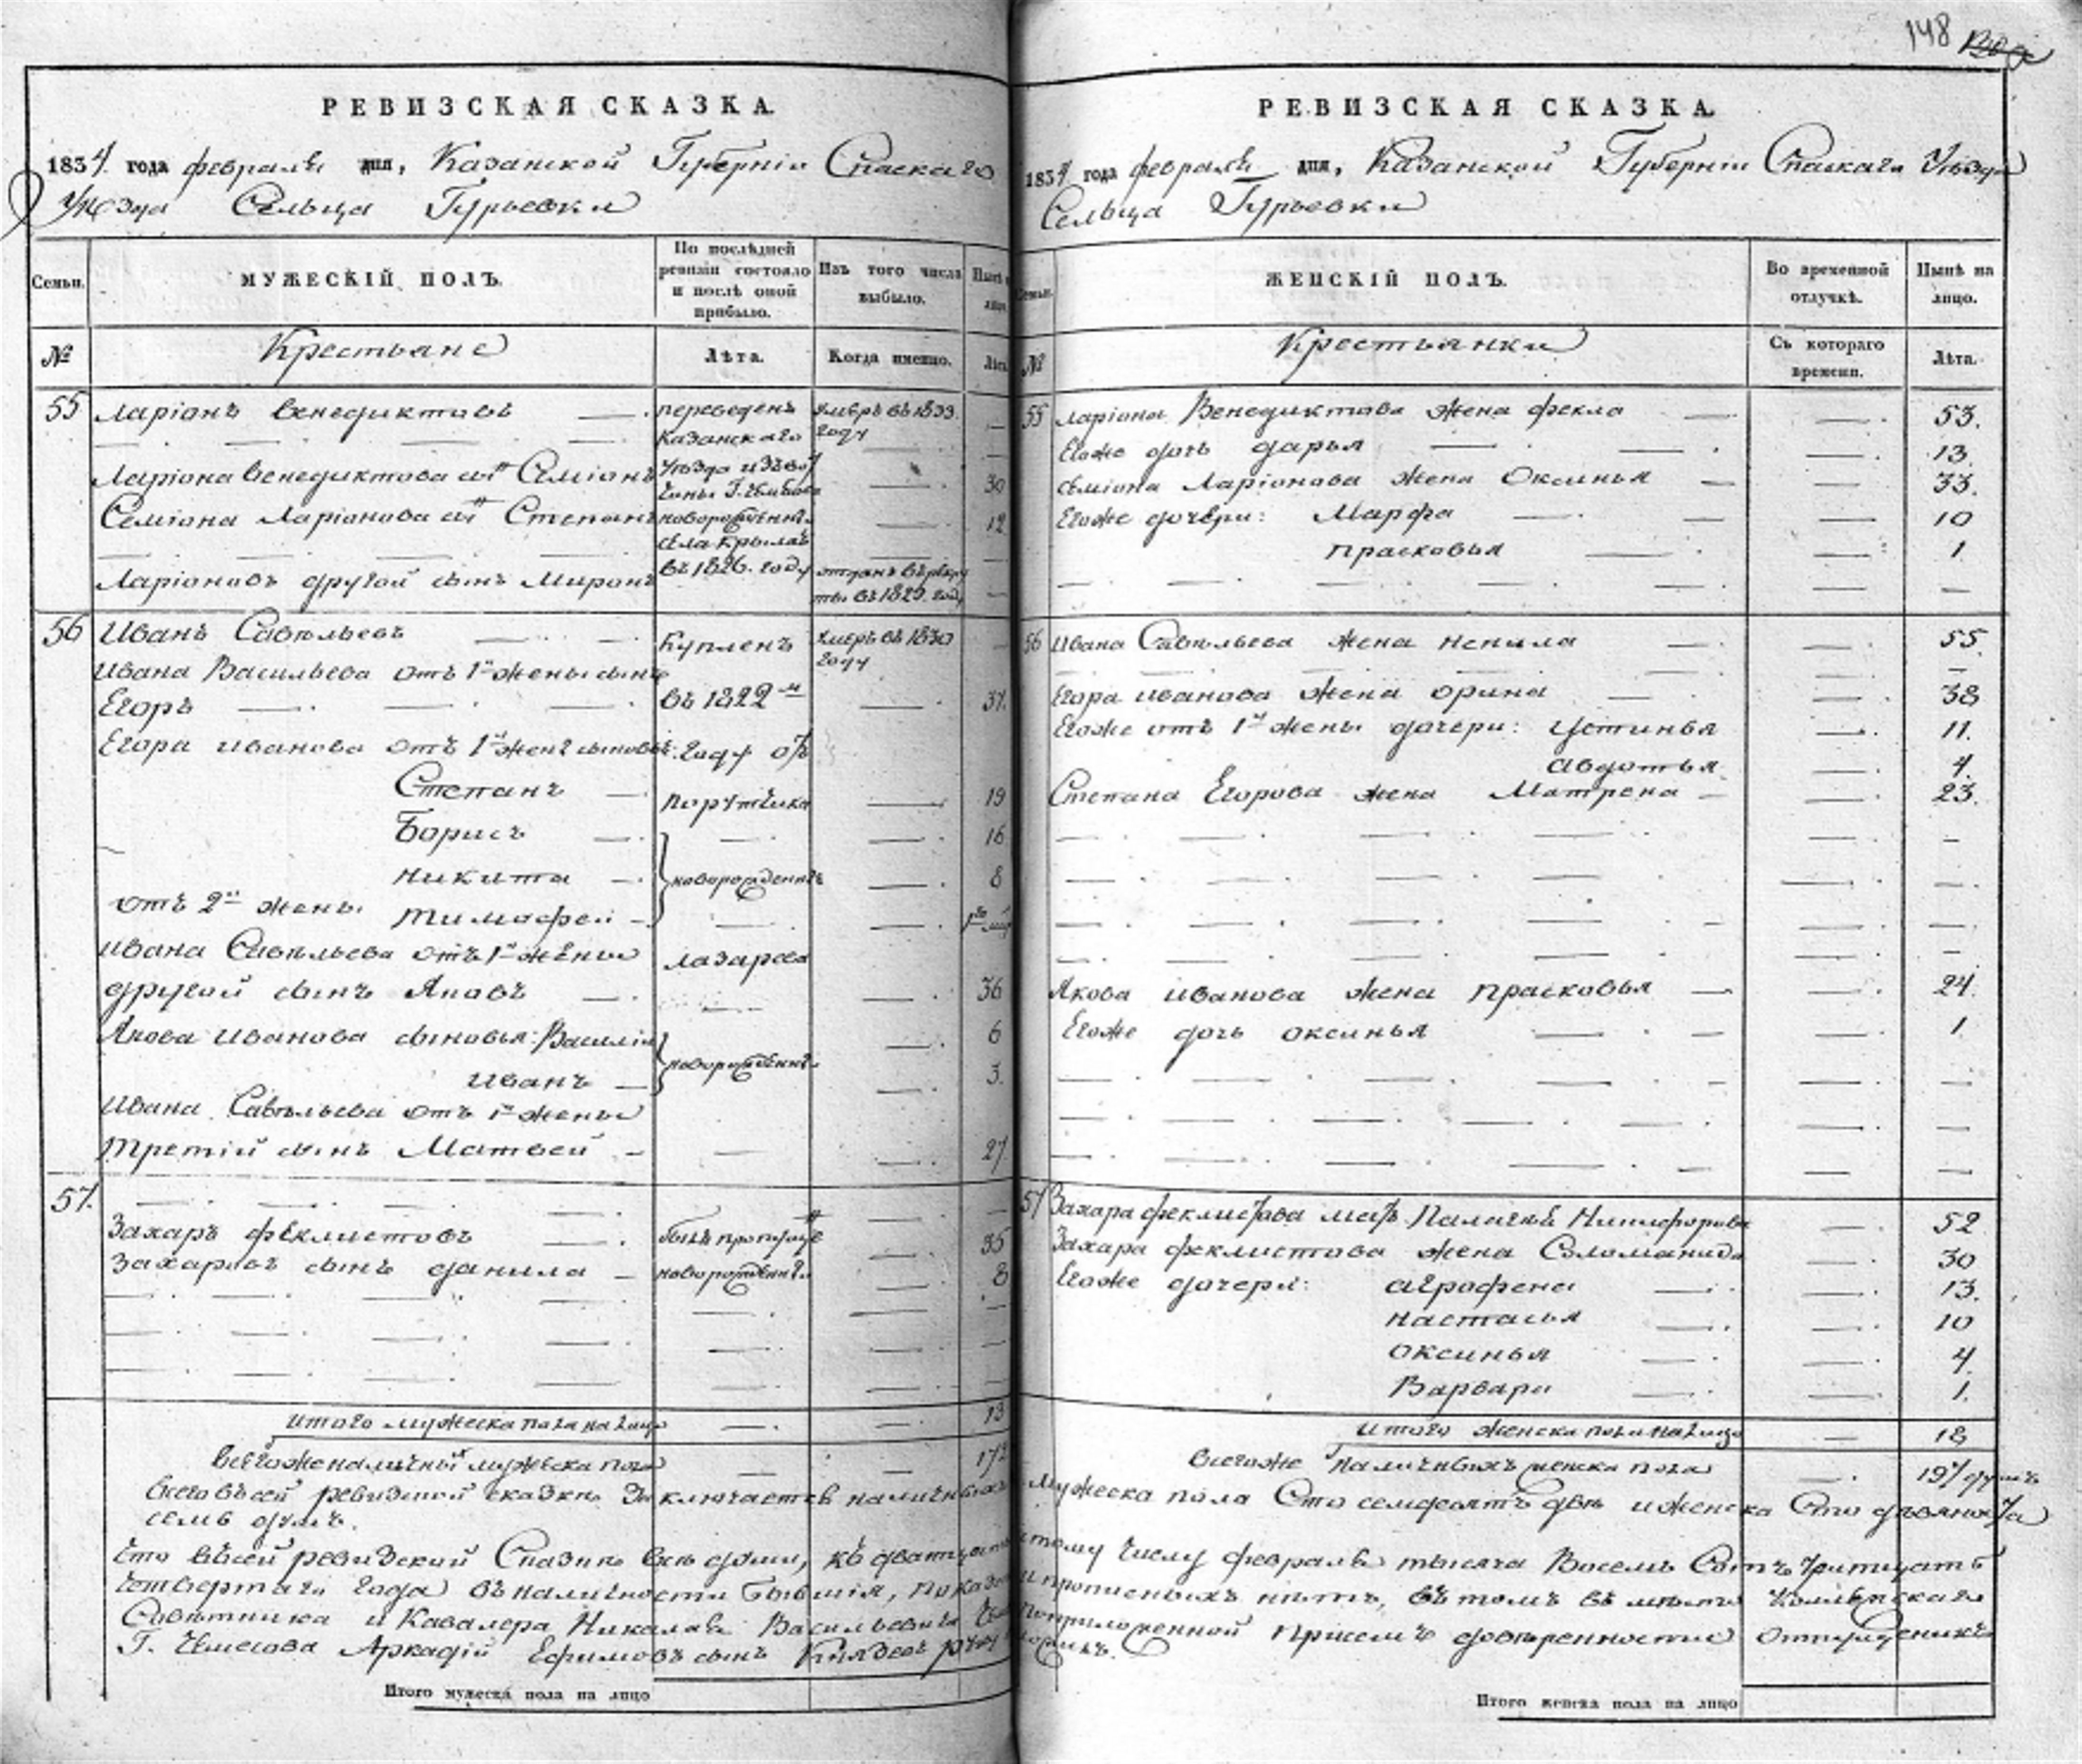 148
РЕВИЗСКАЯ СКАЗКА.
1834 года февраля дня, Казанской Губерніи Спаскаго
Уѣзда Сельца Гурьевки
Семьи.
МУЖЕСКІЙ ПОЛЪ.
По послѣдней ревизіи состояло и послѣ оной прибыло.
Изъ того числа выбыло.
№
Крестьяне
Лѣта.
Когда именно.
55 Ларіонъ Венедиктовъ переведенъ умеръ въ 1833
Казанскаго году
Ларіона Венедиктова сынъ Семіонъ уѣзда изъ 30
Семіона Ларіонова сынъ Степанъ новорожденн. 12
села
Ларіоновъ другой сынъ Миронъ въ 1826. году отданъ въ рекру
ты въ 1829. году
56 Иванъ Савельевъ купленъ умеръ въ 1830
Ивана Васильева отъ 1й жены сынъ году
Егоръ въ 1822м 37.
Егора Иванова отъ 1й жены сыновья: году отъ
Степанъ порутчика 19
Борисъ 16
Никита новорожденны 8
отъ 2й жены Тимофей
Ивана Савельева отъ 1й жены Лазарева
другой сынъ Яковъ 36
Якова Иванова сыновья: Василій 6
новорожденны
Иванъ 3.
Ивана Савельева отъ 1й жены
третій сынъ Матвей 27
57.
Захаръ Феклистовъ былъ пропущен 35
Захаровъ сынъ Данила новорожденн. 8
итого мужеска пола на лицо 13
всегоже наличных мужеска пола 172
РЕВИЗСКАЯ СКАЗКА.
1834 года февраля дня, Казанской Губерніи Спаскаго Уѣзда
Сельца Гурьевки
ЖЕНСКІЙ ПОЛЪ.
Во временной отлучкѣ.
Нынѣ на лицо.
№
Крестьянки
Съ котораго времени.
Лѣта.
55 Ларіона Венедиктова жена Фекла 53.
Егоже дочь Дарья 13
Семіона Ларіонова жена Оксинья 33.
Егоже дочери: Марфа 10
Прасковья 1
56 Ивана Савельева жена Ненила 55
Егора Иванова жена Орина 38
Егоже отъ 1й жены дочери: Устинья 11.
Авдотья 4.
Степана Егорова жена Матрена 23.
Якова Иванова жена Прасковья 24.
Егоже дочь Оксинья 1
57 Захара Феклистова мать Никифорова 52
Захара Феклистова жена Соломанида 30
Егоже дочери: Аграфена 13.
Настасья 10
Оксинья 4
Варвара 1.
итого женска пола на лицо 18
всегоже наличныхъ женска пола 197 душъ
Всего въ сей ревизской сказкѣ заключается наличныхъ мужеска пола Сто семдесятъ двѣ и женска Сто девяноста
семь душъ.
Что въ сей ревизской Сказкѣ всѣ души, къ дватцатому числу февраля тысяча Восемь Сотъ тритцать
четвертаго года въ наличности бывшія, показаны и прописныхъ нѣтъ, въ томъ въ мѣсто Колежскаго
Советника и Кавалера Николая Васильевича по приложенной при семъ доверенности отпущеникъ
Г. Аркадій Ефимовъ сынъ руку
Итого мужеска пола на лицо
Итого женска пола на лицо